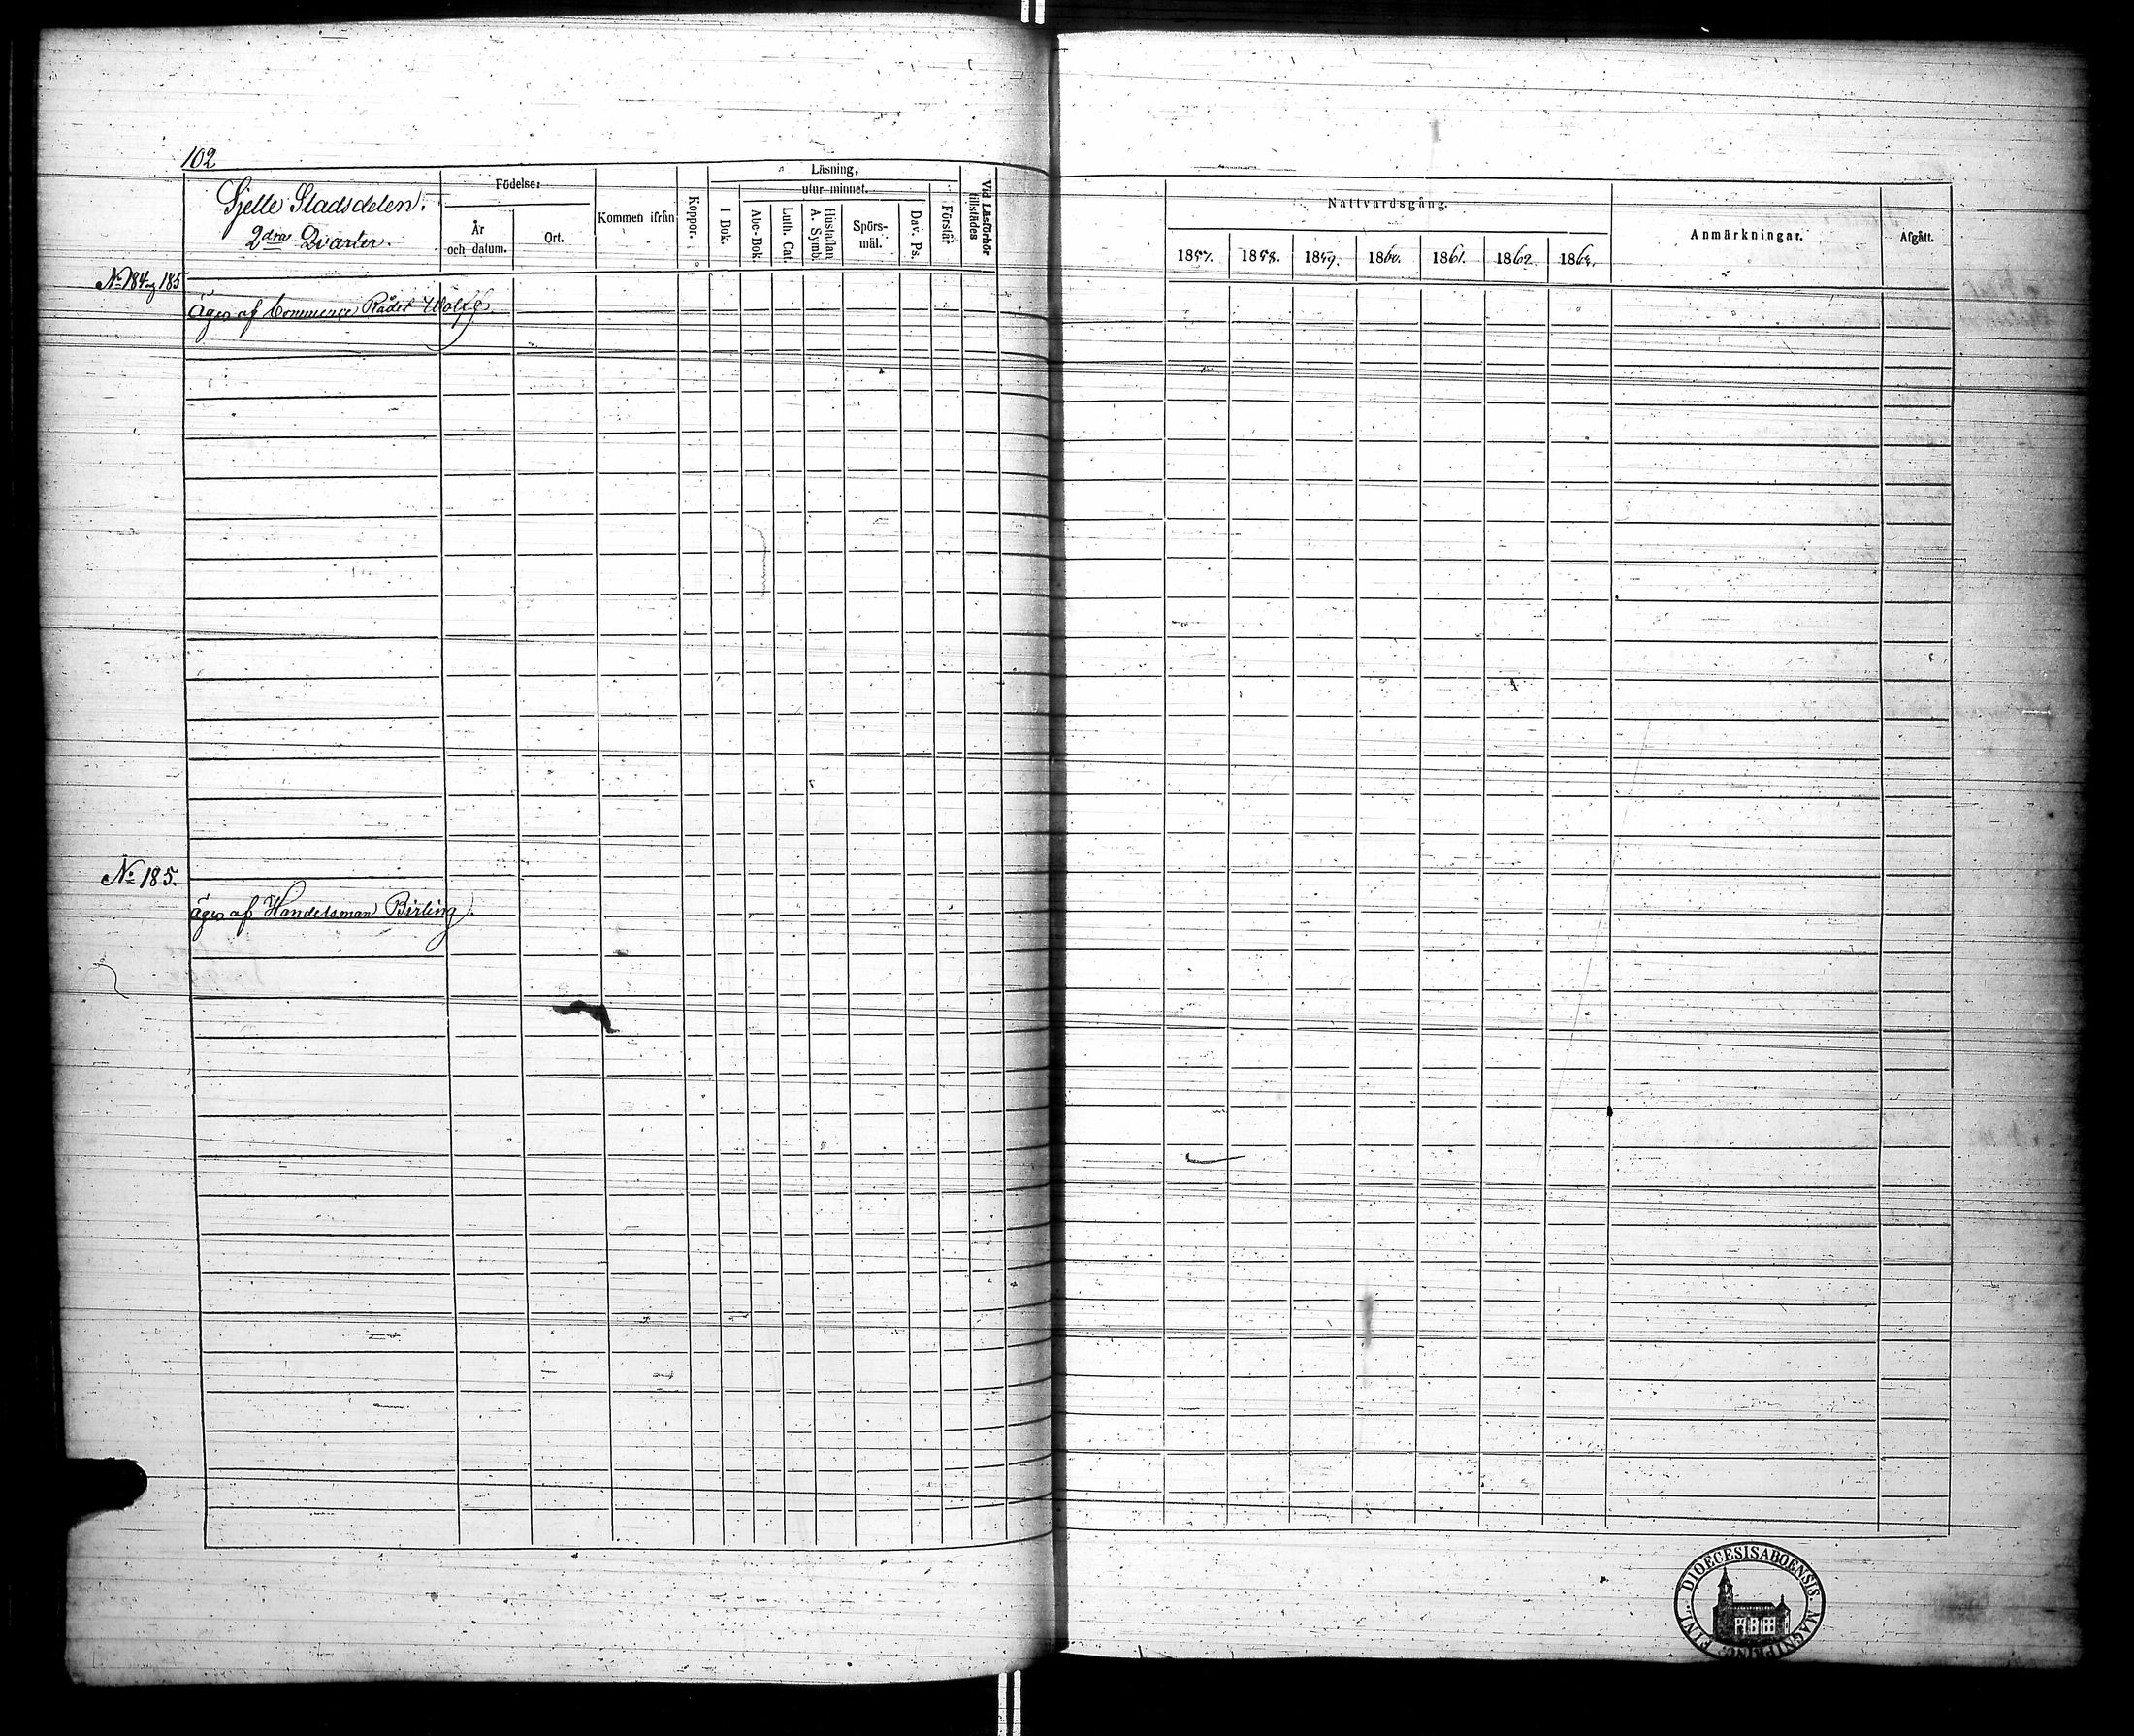 102
Sjette Stadsdelen.
2dra Qvarter.
Födelse:
År
och datum.
Ort.
Kommen ifrån
Koppor.
Läsning,
utur minnet.
I Bok.
Abc-Bok.
Luth. Cat.
Hustaflan
A. Symb.
Spörs-
mål.
Dav. Ps.
Förstår
Vid Läsförhör
tillstädes
Nattvardsgång.
1857.
1858.
1859.
1860.
1861.
1862.
1863.
Anmärkningar.
Afgått.
No 184 185
äges af Commerce Rådet Wolff
No 185.
äges af Handelsman Birling.
DIOECESIS ABOENSIS MAGNI PRINC. FINL.